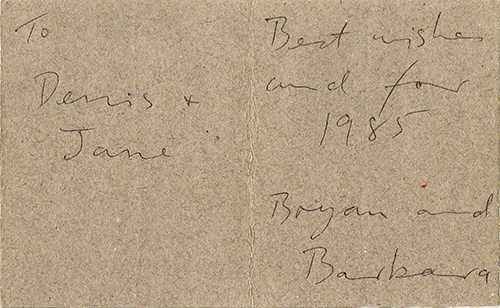 To
Denis +
Jane
Best wishes
and for
1985
Bryan and
Barbara